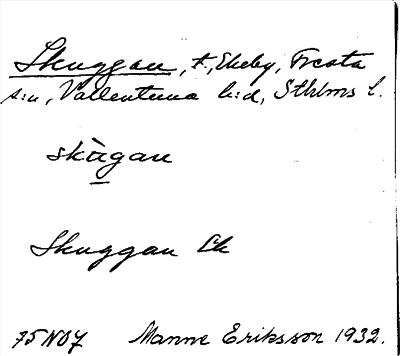 Skuggan, t., Ekeby, Frösta
s:n, Vallentuna h:d, Sthlms l.
skùgan
Skuggan Lk
75 NO7 Manne Eriksson 1932.